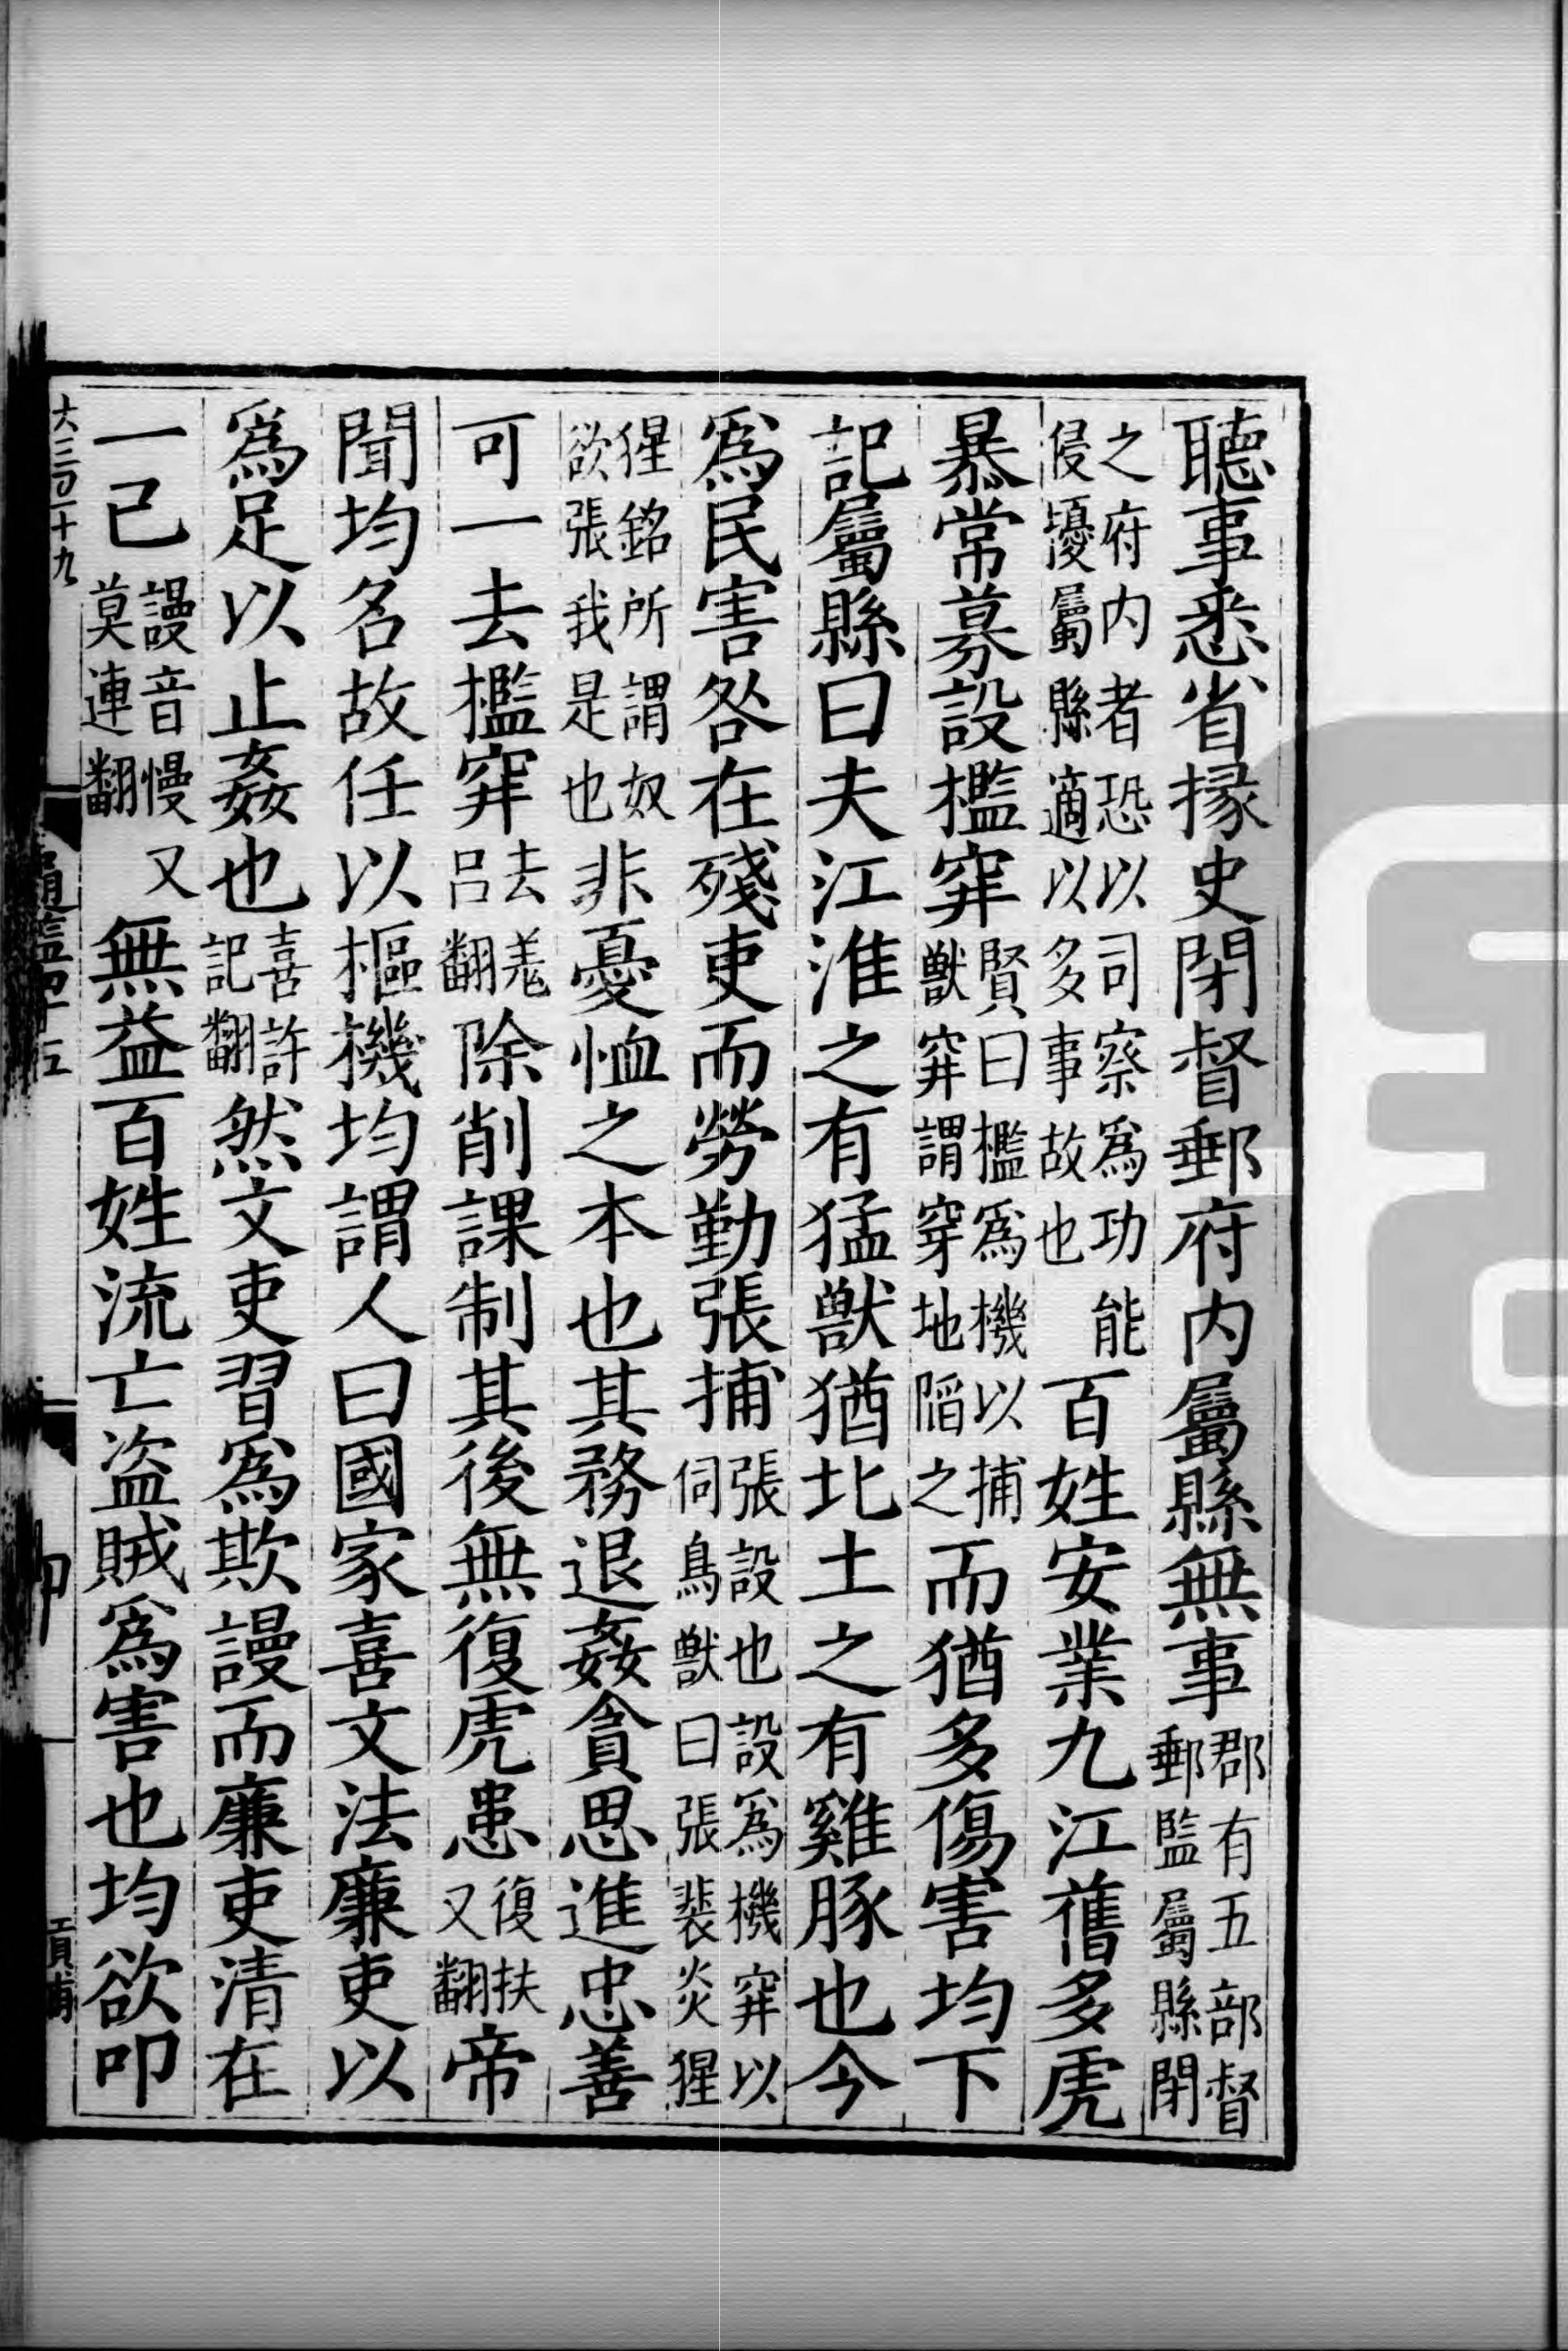 聽事悉省掾史閉督郵府内屬縣無事郡有五部督郵監屬縣閉
之府内者恐以司察爲功能侵擾屬縣適以多事故也百姓安業九江舊多虎
暴常募設檻穽賢曰檻爲機以捕獸穽謂穿地陷之而猶多傷害均下
記屬縣曰夫江淮之有猛獸猶北土之有雞豚也今
爲民害咎在殘吏而勞勤張捕張設也設爲機穽以伺鳥獸曰張裴炎猩
猩銘所謂奴欲張我是也非憂恤之本也其務退姦貪思進忠善
可一去檻穽去羌吕翻除削課制其後無復虎患復扶又翻帝
聞均名故任以樞機均謂人曰國家喜文法廉吏以
爲足以止姦也喜許記翻然文吏習爲欺謾而廉吏清在
一己謾音慢又莫連翻無益百姓流亡盗賊爲害也均欲叩
大三百十九